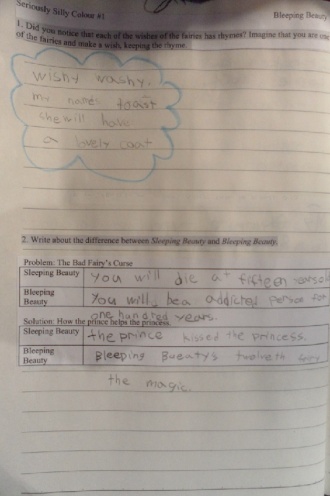 Seriously Silly Colour #1
Bleeping Beauty
1. Did you notice that each of the wishes of the fairies has rhymes? Imagine that you are one
of the fairies and make a wish, keeping the rhyme.
wishy washy.
my name toast
she will have
a lovely coat
2. Write about the difference between Sleeping Beauty and Bleeping Beauty.
Problem: The Bad Fairy's Curse
Sleeping Beauty
you will die at fifteen years old
Bleeping
Beauty
You will be a addicted person for
one hundred years.
Solution: How the prince helps the princess.
Sleeping Beauty
the prince kissed the princess.
Bleeping
Beauty
Bleeping Bueaty's twelveth fairy
the magic.